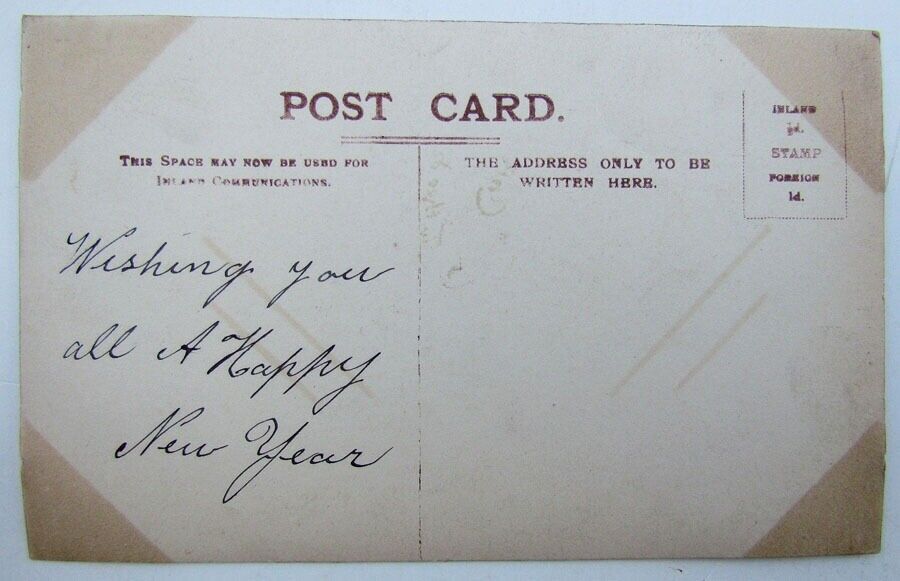 POST CARD.
THIS SPACE MAY NOW BE USED FOR
INLAND COMMUNICATIONS.
THE ADDRESS ONLY TO BE
WRITTEN HERE.
INLAND
½d.
STAMP
FOREIGN
1d.
Wishing you
all A Happy
New Year